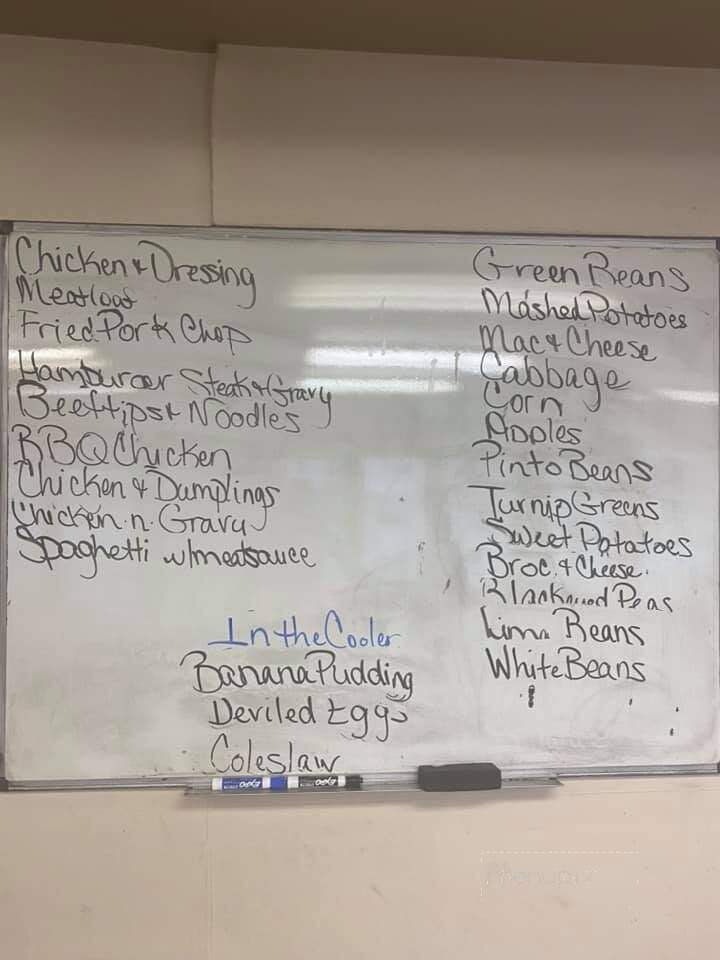 Chicken & Dressing
Meatloaf
Fried Pork Chop
Hamburger Steak & Gravy
Beeftips & Noodles
BBQ Chicken
Chicken & Dumplings
Chicken n. Gravy
Spaghetti w/meatsauce
Green Beans
Mashed Potatoes
Mac & Cheese
Cabbage
Corn
Apples
Pinto Beans
Turnip Greens
Sweet Potatoes
Broc. & Cheese.
Peas
Lima Beans
White Beans
In the Cooler
Banana Pudding
Deviled Eggs
Coleslaw
EXPO EXPO
Menupix